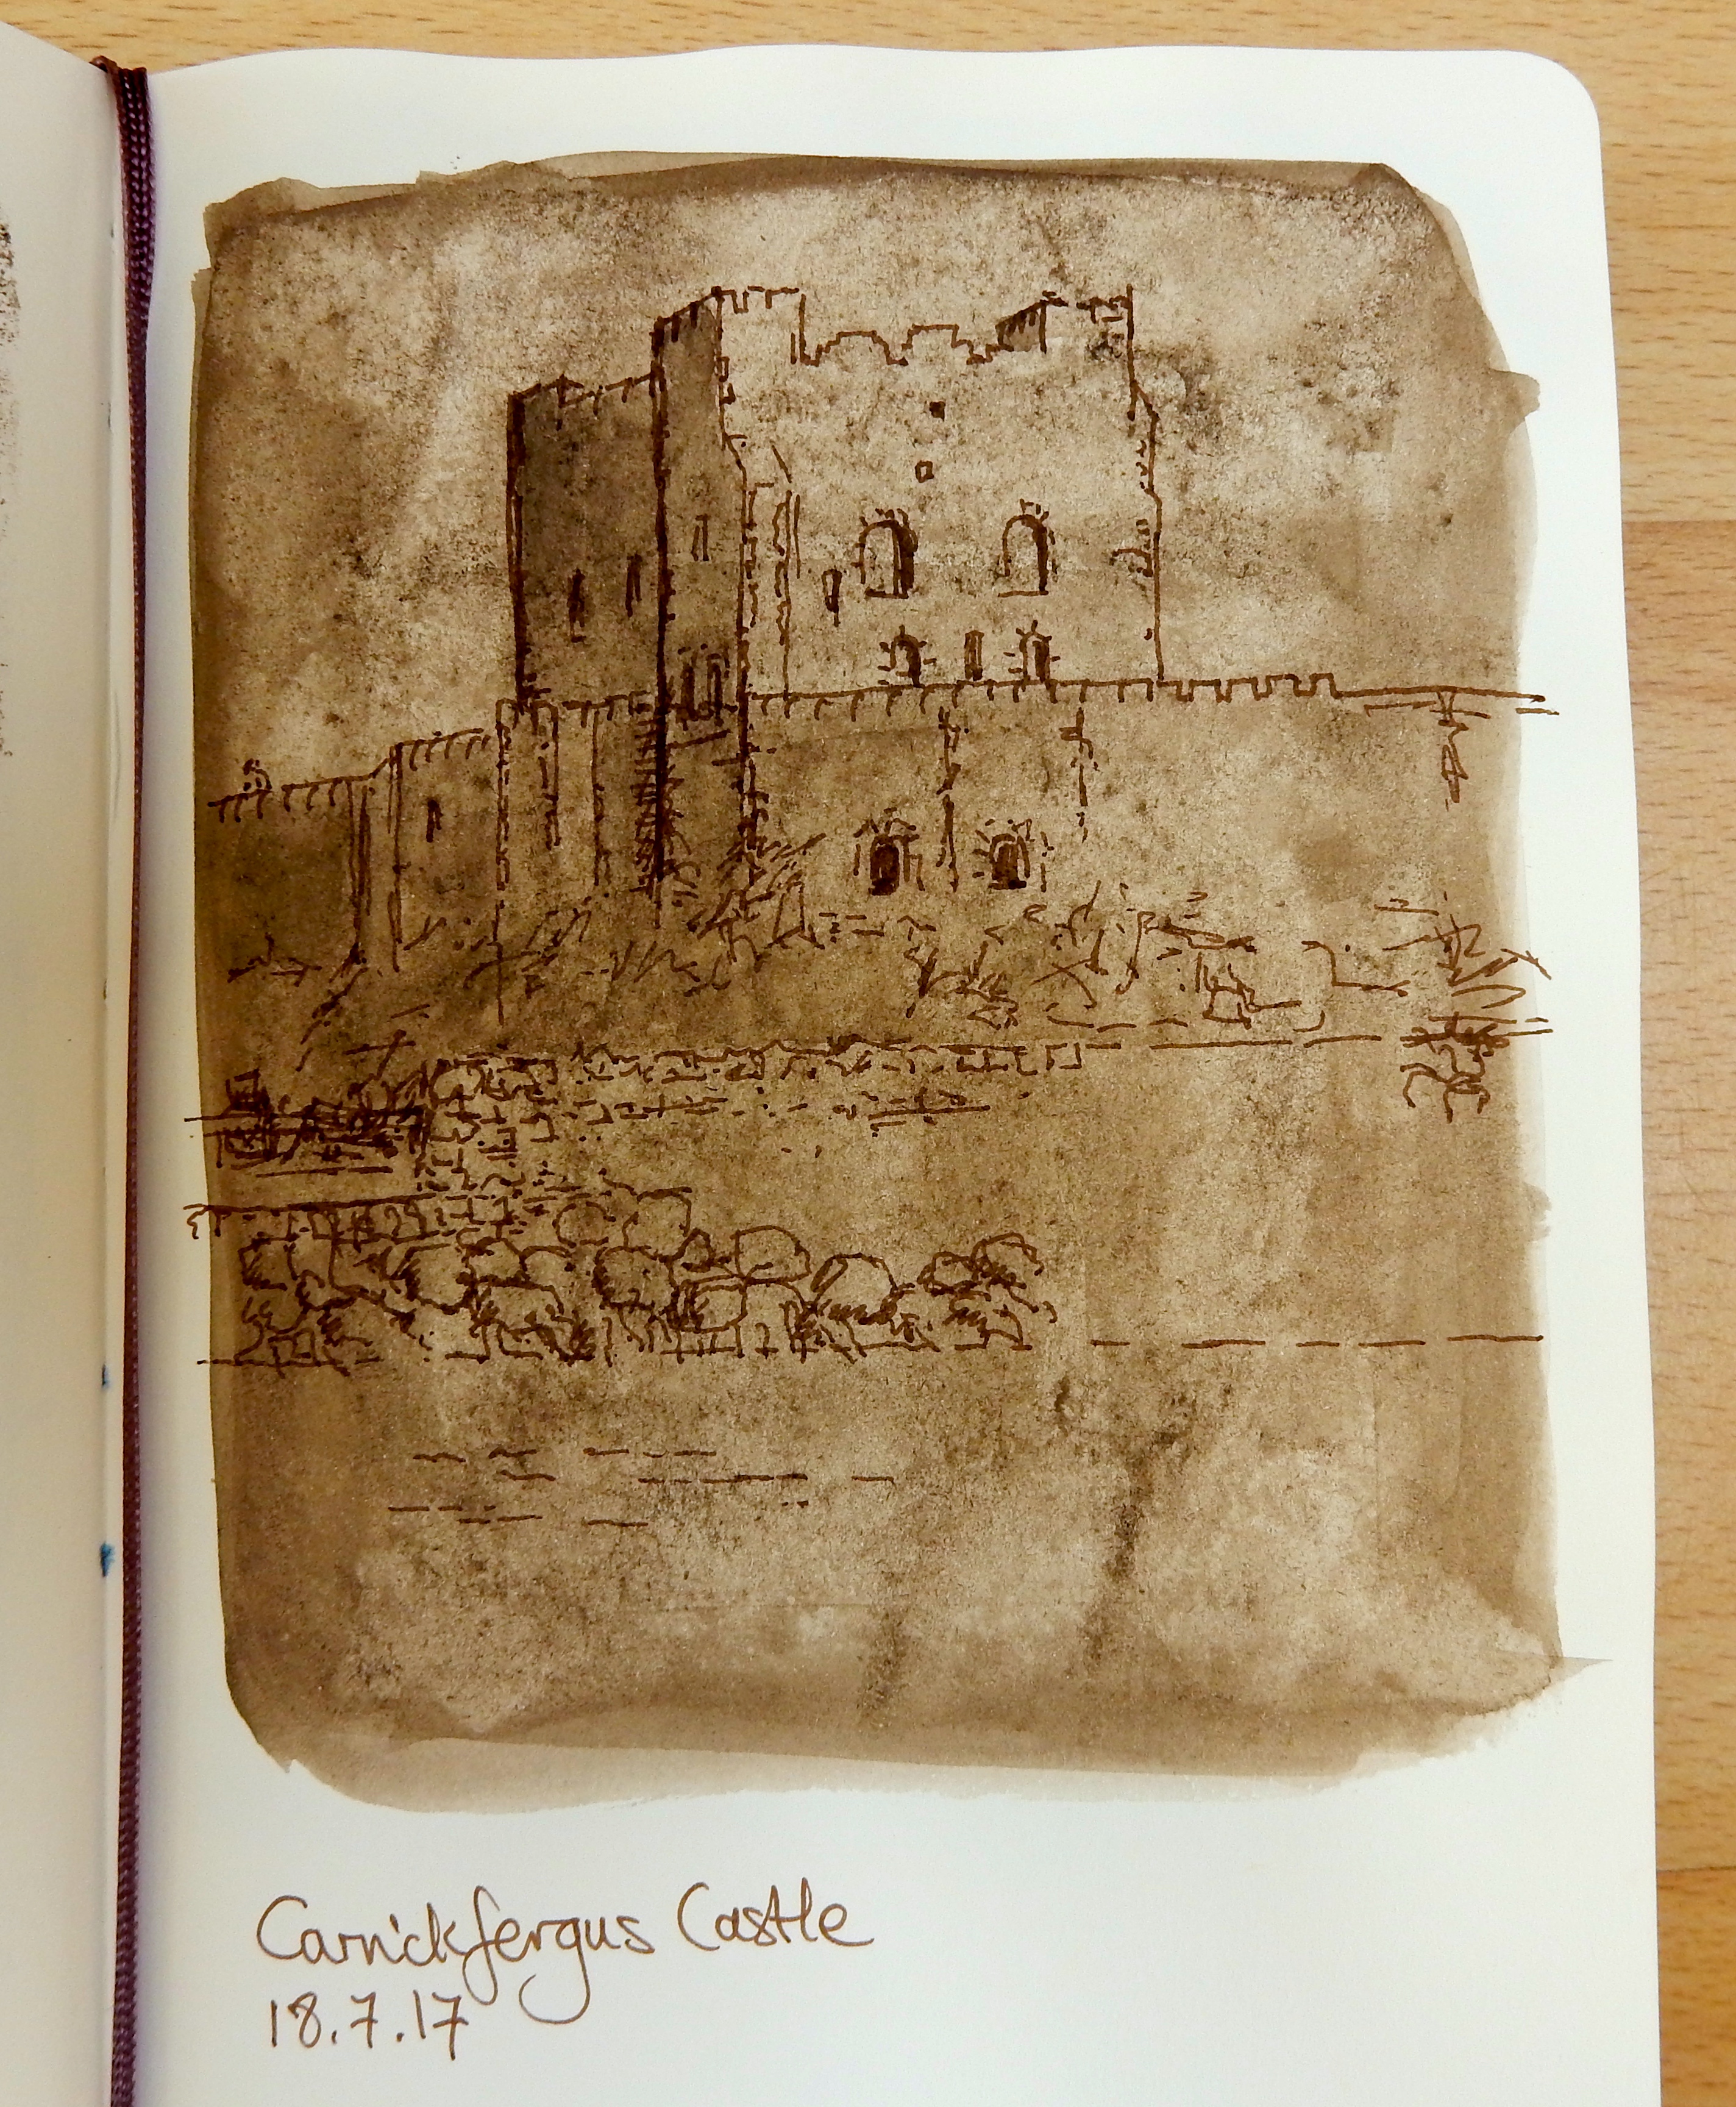 Carrickfergus Castle
18.7.17